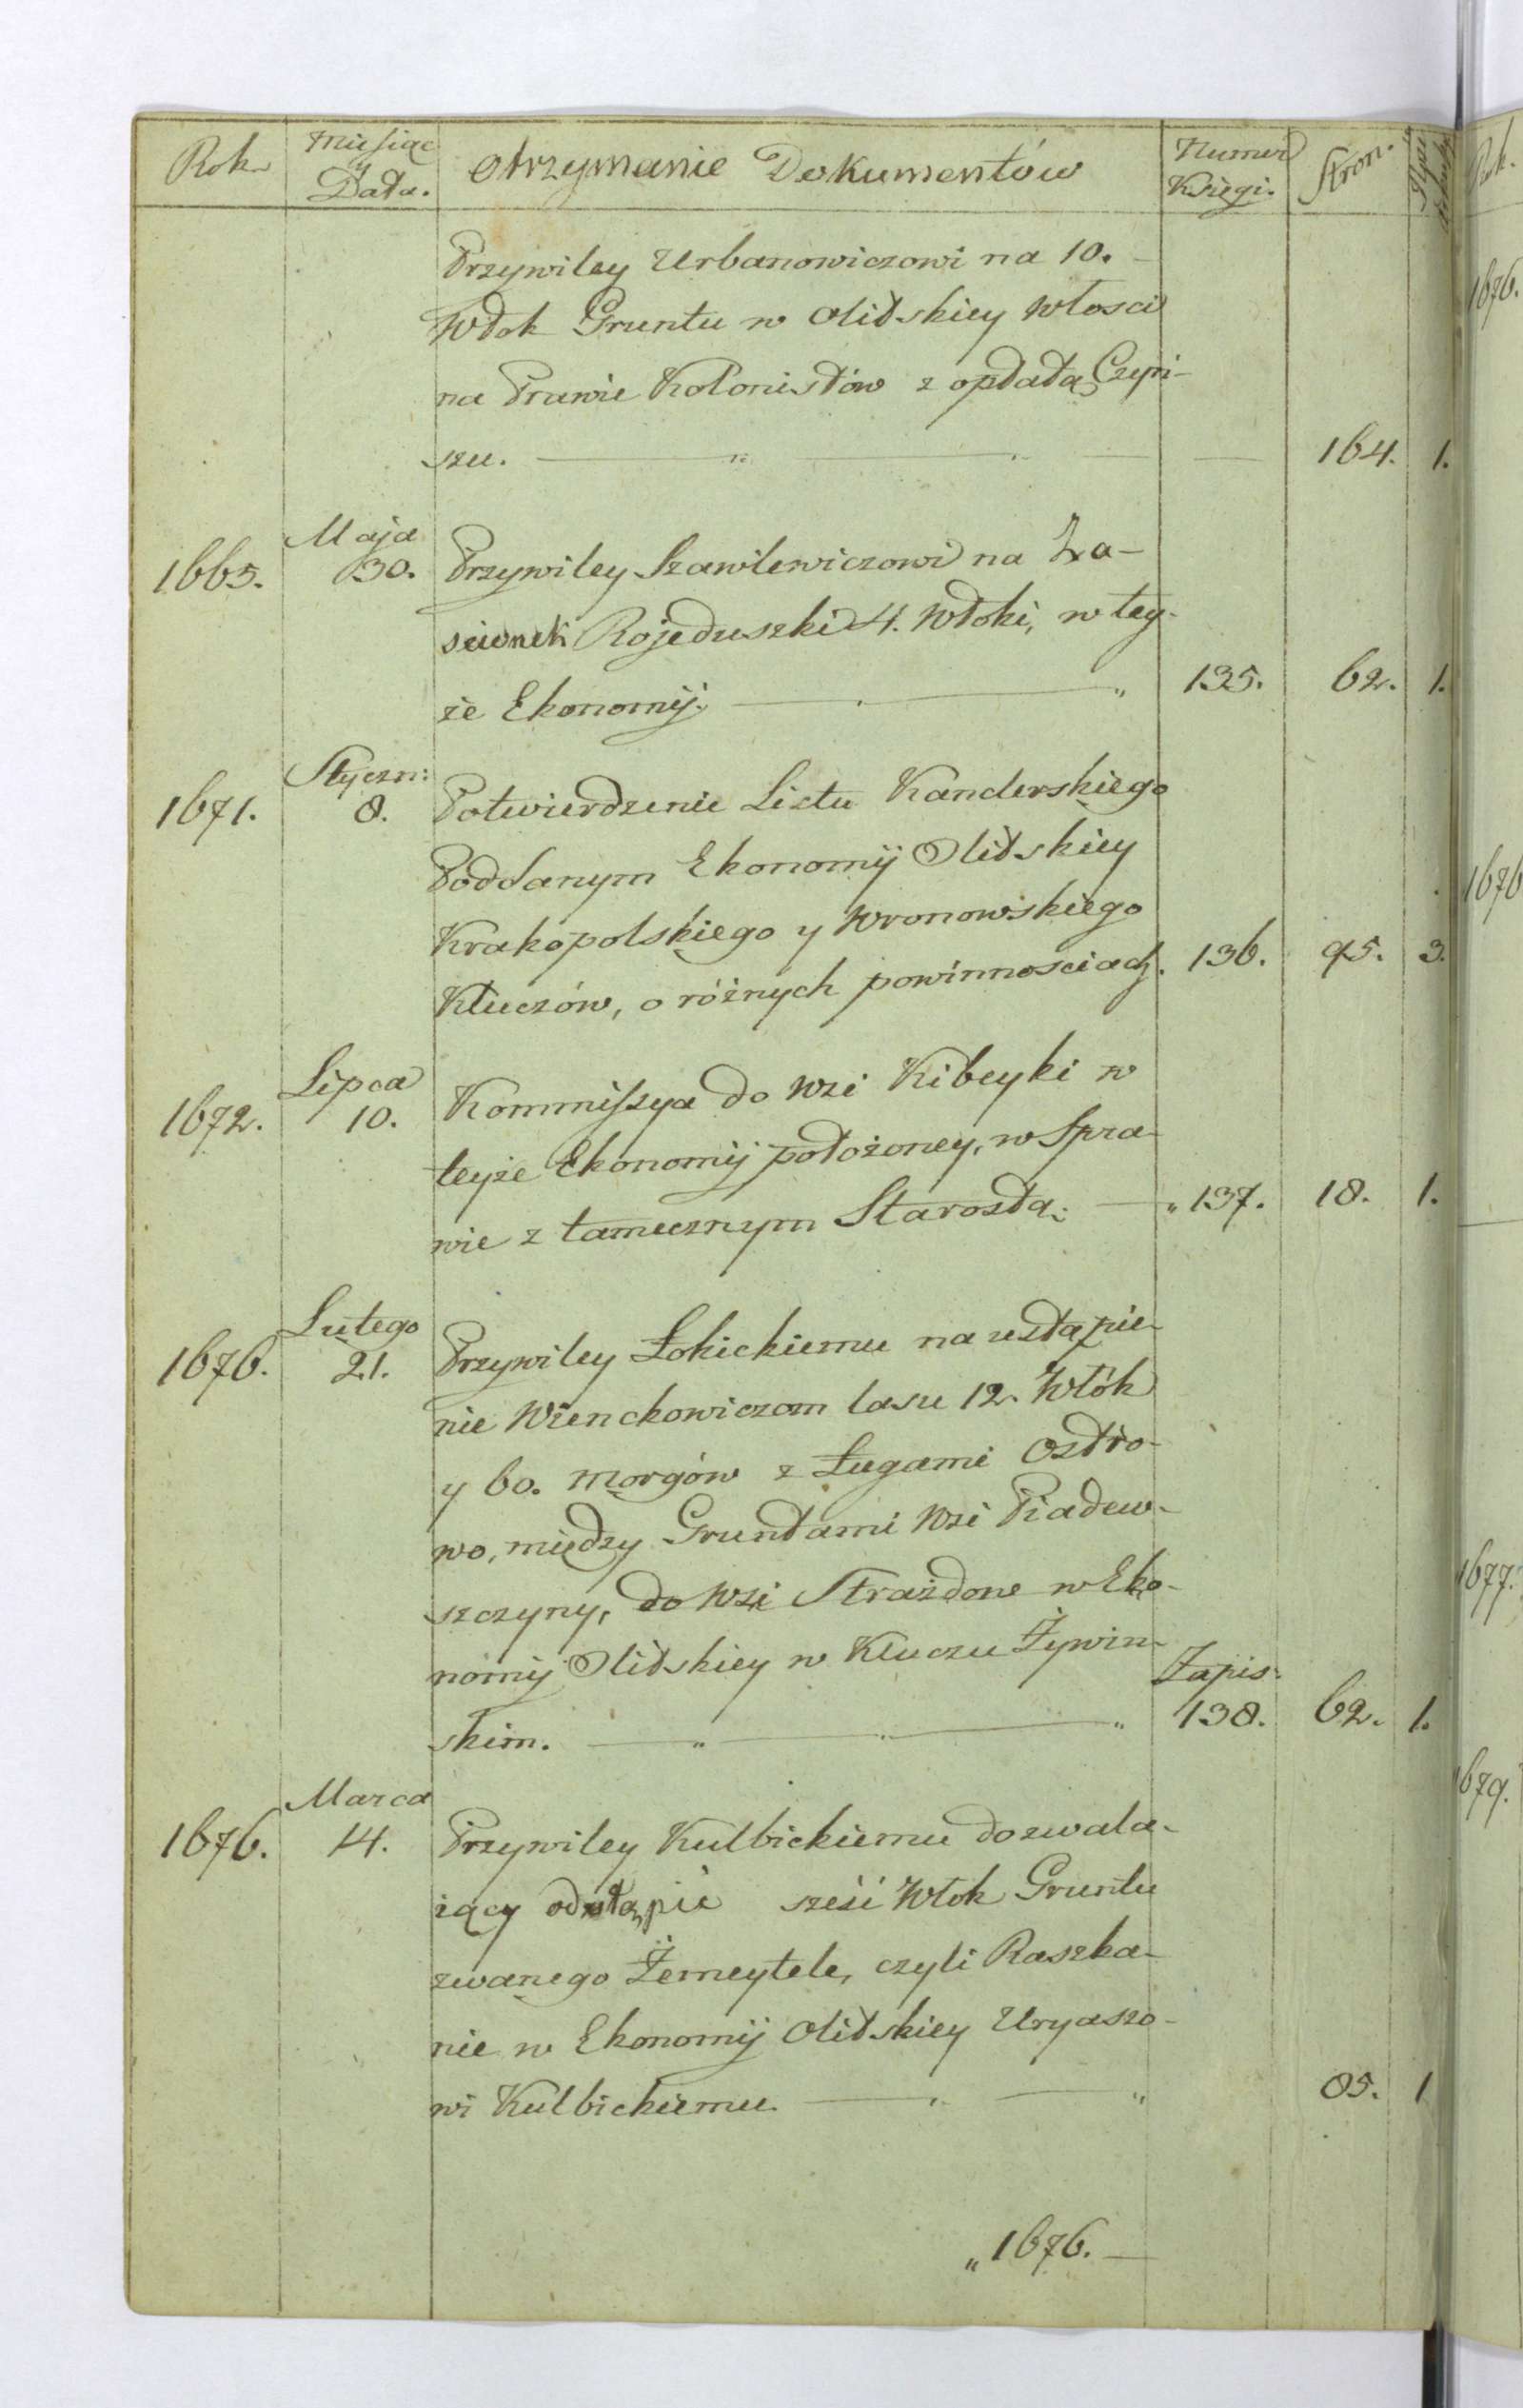 Rok Miesiąc Data. Otrzymanie Dokumentów Numer Księgi. Stron.
Przywiley Urbanowiczowi na 10.
Włok Gruntu w Olitskiey Włosci
na Prawie Kolonistów z opłatą Czyn-
szu. 164. 1.
1665. Maja 30. Przywiley Szawlewiczowi na Za-
scianek Rojeduszki 4. Włoki, w tey-
że Ekonomij. 135. 62. 1.
1671. Styczn: 8. Potwierdzenie Listu Kanderskiego
Poddanym Ekonomij Olitskiey
Krakopolskiego y Wronowskiego
Kluczów, o różnych powinnosciach. 136. 95. 3.
1672. Lipca 10. Kommissya do Wsi Kibeyki w
teyże Ekonomij położoney, w Spra-
wie z tamecznym Starostą. 137. 18. 1.
1676. Lutego 21. Przywiley Łokickiemu na ustąpie-
nie Wienckowiczom lasu 12. Włók
y 60. morgów z Ługami Ostro-
wo, między Gruntami Wsi Piadew-
szczyny, do Wsi Strażdone w Eko-
nomij Olitskiey w Kluczu Żywin-
skim. Zapis: 138. 62. 1.
1676. Marca 14. Przywiley Kulbickiemu dozwala-
iący odstąpić sześć Włok Gruntu
zwanego Żemeytele, czyli Raszka-
nie w Ekonomij Olitskiey Uryaszo-
wi Kulbickiemu. 85. 1
„1676.
Rok.
1676.
1676
1677.
1679.